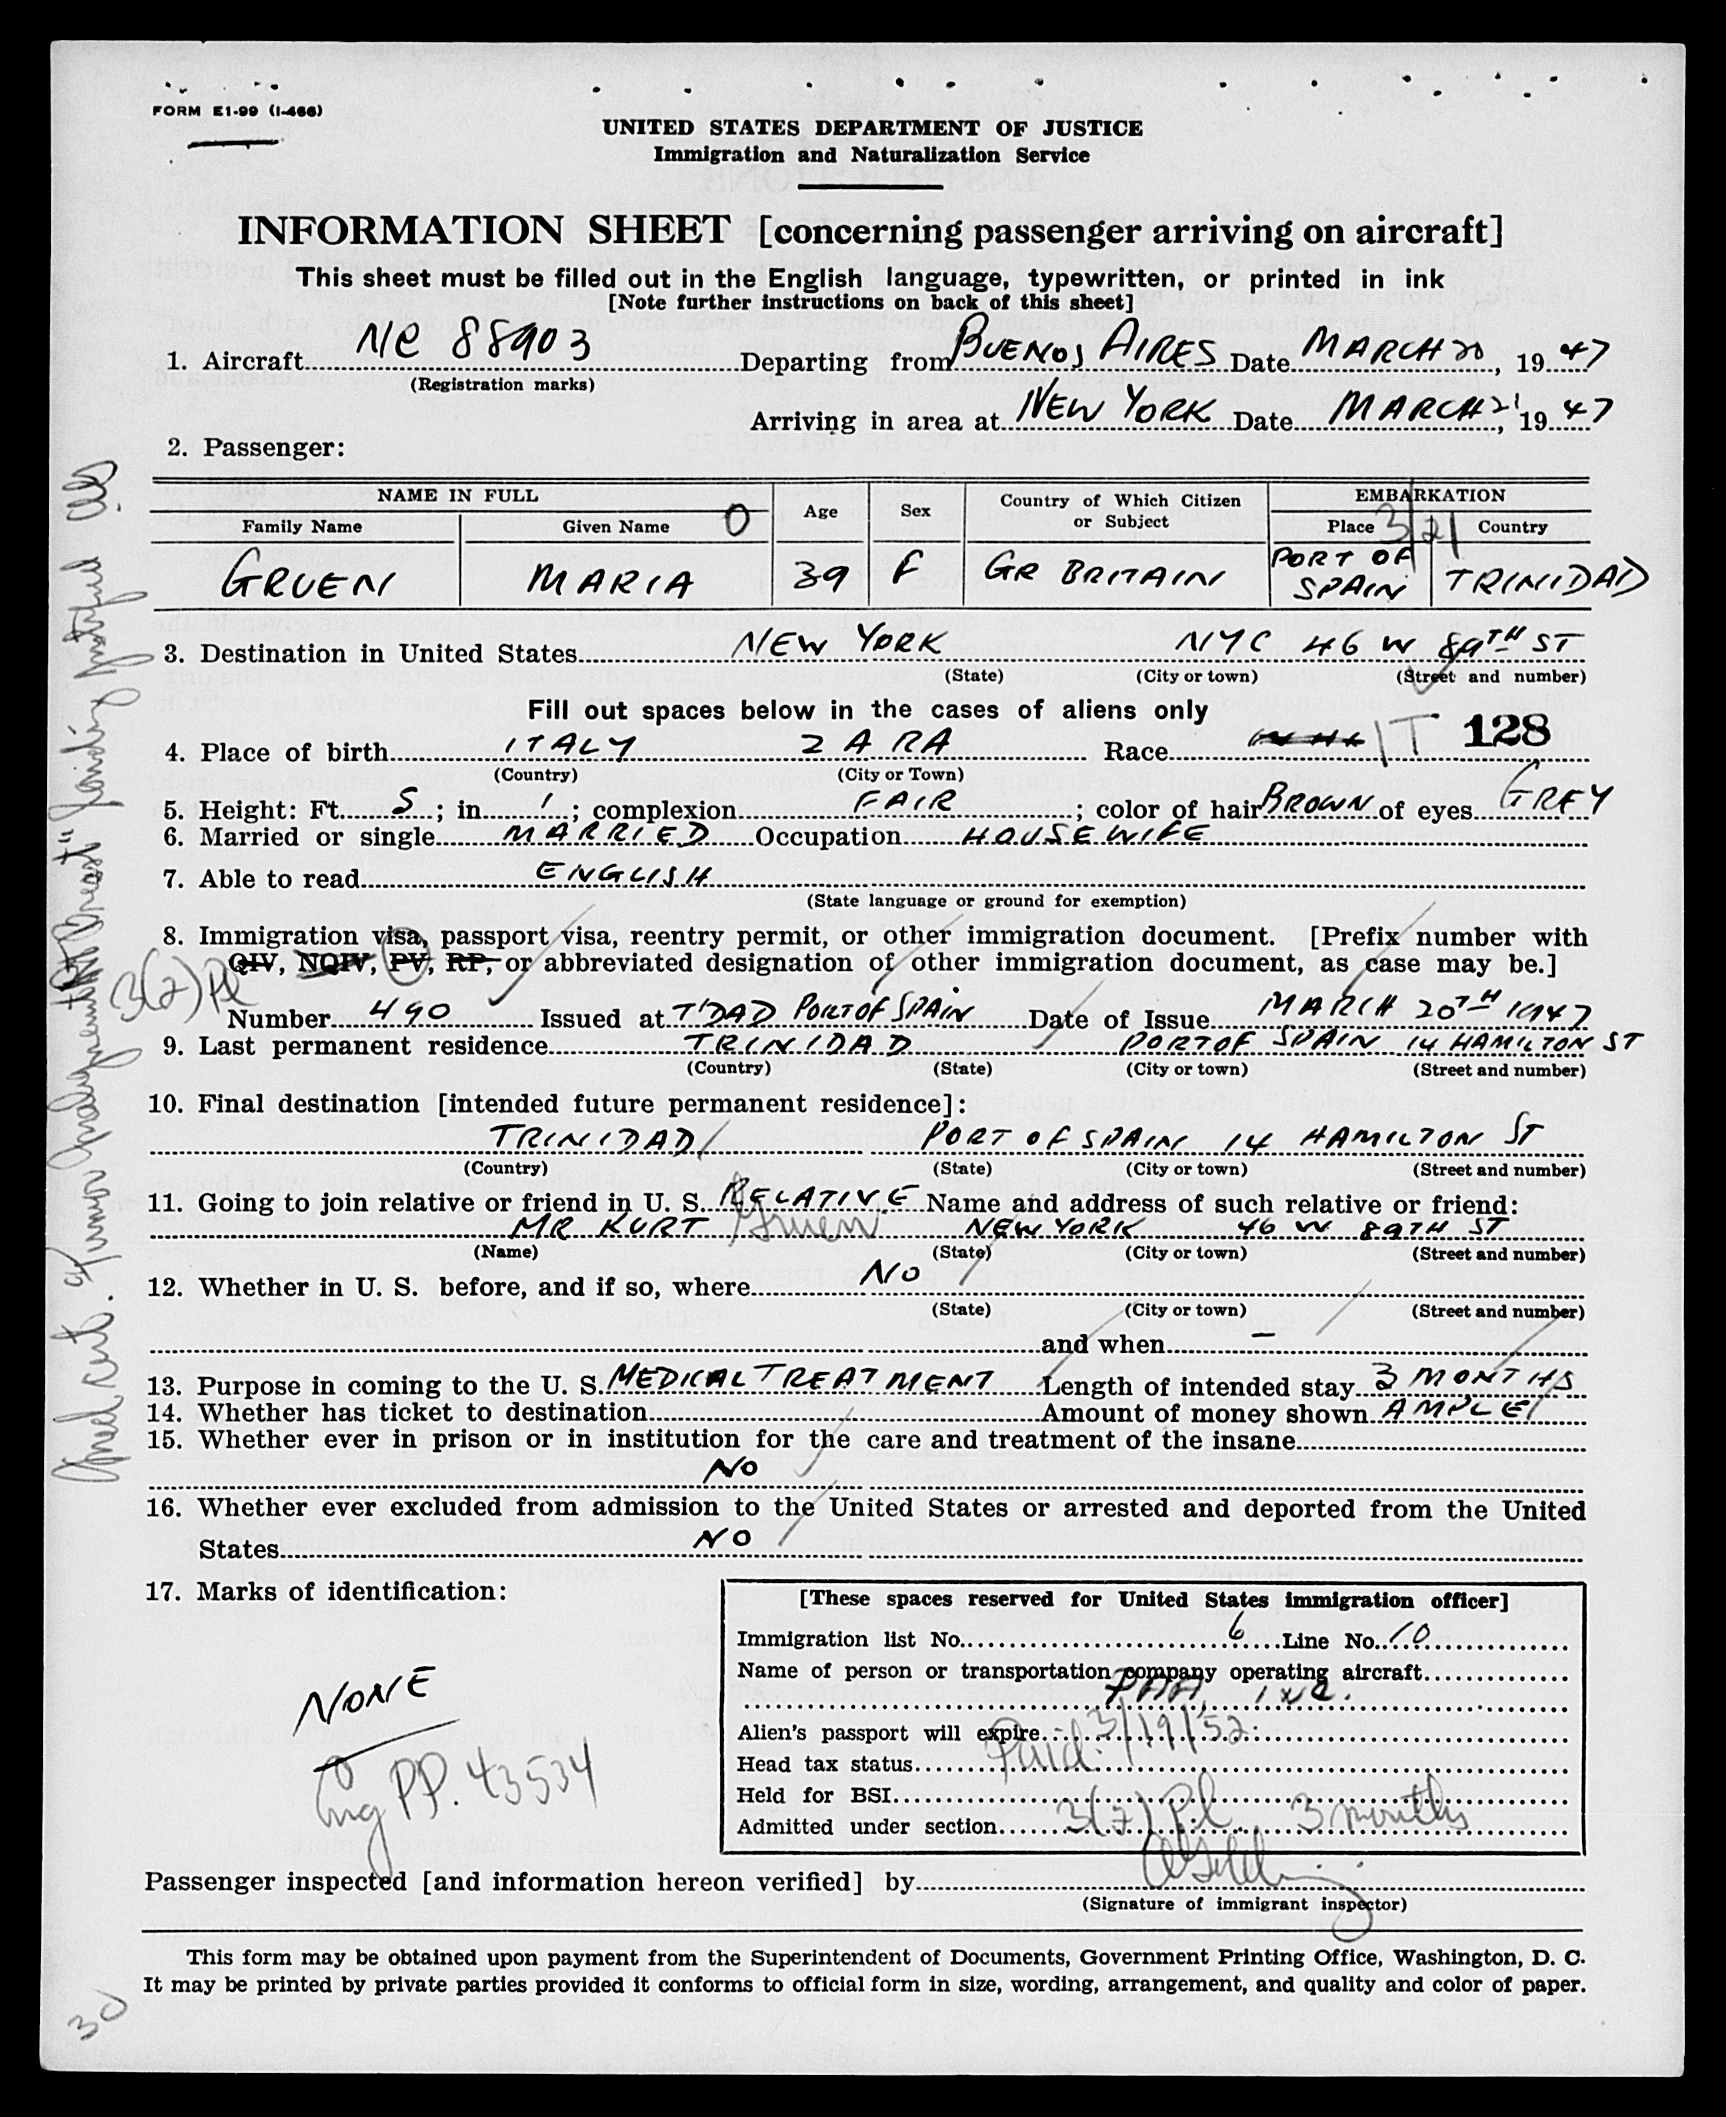 FORM E1-99 (I-466)
UNITED STATES DEPARTMENT OF JUSTICE
Immigration and Naturalization Service
INFORMATION SHEET [concerning passenger arriving on aircraft]
This sheet must be filled out in the English language, typewritten, or printed in ink
[Note further instructions on back of this sheet]
1. Aircraft NC 88903 Departing from BUENOS AIRES Date MARCH 20, 19 47
(Registration marks)
Arriving in area at NEW YORK Date MARCH 21, 19 47
2. Passenger:
NAME IN FULL Age Sex Country of Which Citizen or Subject EMBARKATION
Family Name Given Name O Place 3/21 Country
GRUEN MARIA 39 F GR BRITAIN PORT OF SPAIN TRINIDAD
3. Destination in United States NEW YORK NYC 46 W 89TH ST
(State) (City or town) (Street and number)
Fill out spaces below in the cases of aliens only
4. Place of birth ITALY ZARA Race IT 128
(Country) (City or Town)
5. Height: Ft. 5; in. 1; complexion FAIR; color of hair BROWN of eyes GREY
6. Married or single MARRIED Occupation HOUSEWIFE
7. Able to read ENGLISH
(State language or ground for exemption)
8. Immigration visa, passport visa, reentry permit, or other immigration document. [Prefix number with
QIV, NQIV, PV, RP, or abbreviated designation of other immigration document, as case may be.]
3(2) Pl
Number 490 Issued at T'DAD PORT OF SPAIN Date of Issue MARCH 20TH 1947
9. Last permanent residence TRINIDAD PORT OF SPAIN 14 HAMILTON ST
(Country) (State) (City or town) (Street and number)
10. Final destination [intended future permanent residence]:
TRINIDAD PORT OF SPAIN 14 HAMILTON ST
(Country) (State) (City or town) (Street and number)
11. Going to join relative or friend in U. S. RELATIVE Name and address of such relative or friend:
MR KURT Gruen NEW YORK 46 W 89TH ST
(Name) (State) (City or town) (Street and number)
12. Whether in U. S. before, and if so, where NO
(State) (City or town) (Street and number)
and when —
13. Purpose in coming to the U. S. MEDICAL TREATMENT Length of intended stay 3 MONTHS
14. Whether has ticket to destination Amount of money shown AMPLE
15. Whether ever in prison or in institution for the care and treatment of the insane
NO
16. Whether ever excluded from admission to the United States or arrested and deported from the United
States NO
17. Marks of identification:
NONE
Eng PP. 43534
[These spaces reserved for United States immigration officer]
Immigration list No. 6 Line No. 10
Name of person or transportation company operating aircraft
PAA, INC.
Alien's passport will expire 3/19/52
Head tax status Paid
Held for BSI
Admitted under section 3(2) Pl 3 months
Passenger inspected [and information hereon verified] by
(Signature of immigrant inspector)
This form may be obtained upon payment from the Superintendent of Documents, Government Printing Office, Washington, D. C.
It may be printed by private parties provided it conforms to official form in size, wording, arrangement, and quality and color of paper.
30
Med cert. "Tumor Malignant Breast"